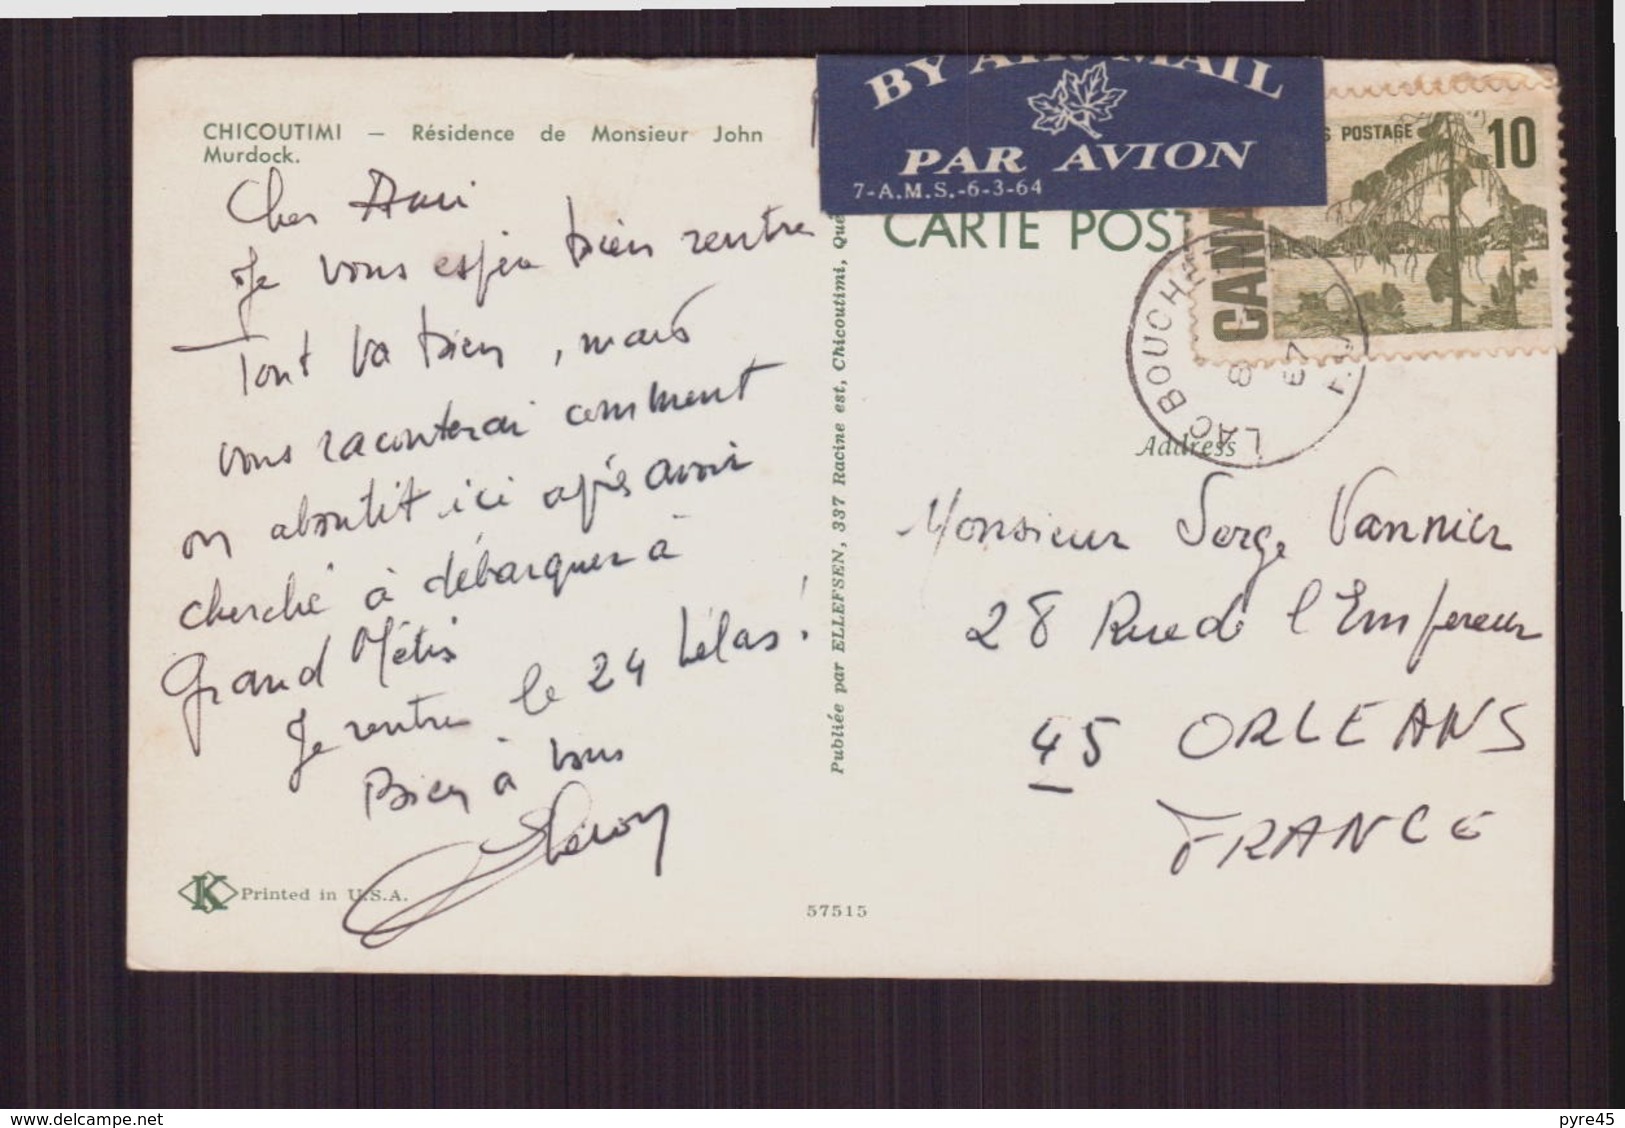 CHICOUTIMI — Résidence de Monsieur John
Murdock.
Cher Ami
Je vous espère bien rentré
Tout va bien, mais
vous raconterai comment
on aboutit ici après avoir
cherché à débarquer à
Grand Métis
Je rentre le 24 hélas !
Bien à vous
K Printed in U.S.A.
57515
Publiée par ELLEFSEN, 337 Racine est, Chicoutimi, Qué
BY AIR MAIL
PAR AVION
7-A.M.S.-6-3-64
CARTE POST
S POSTAGE 10
CANA
LAC BOUCH
8
67
Address
Monsieur Serge Vannier
28 Rue de l'Empereur
45 ORLEANS
FRANCE
www.delcampe.net
pyre45